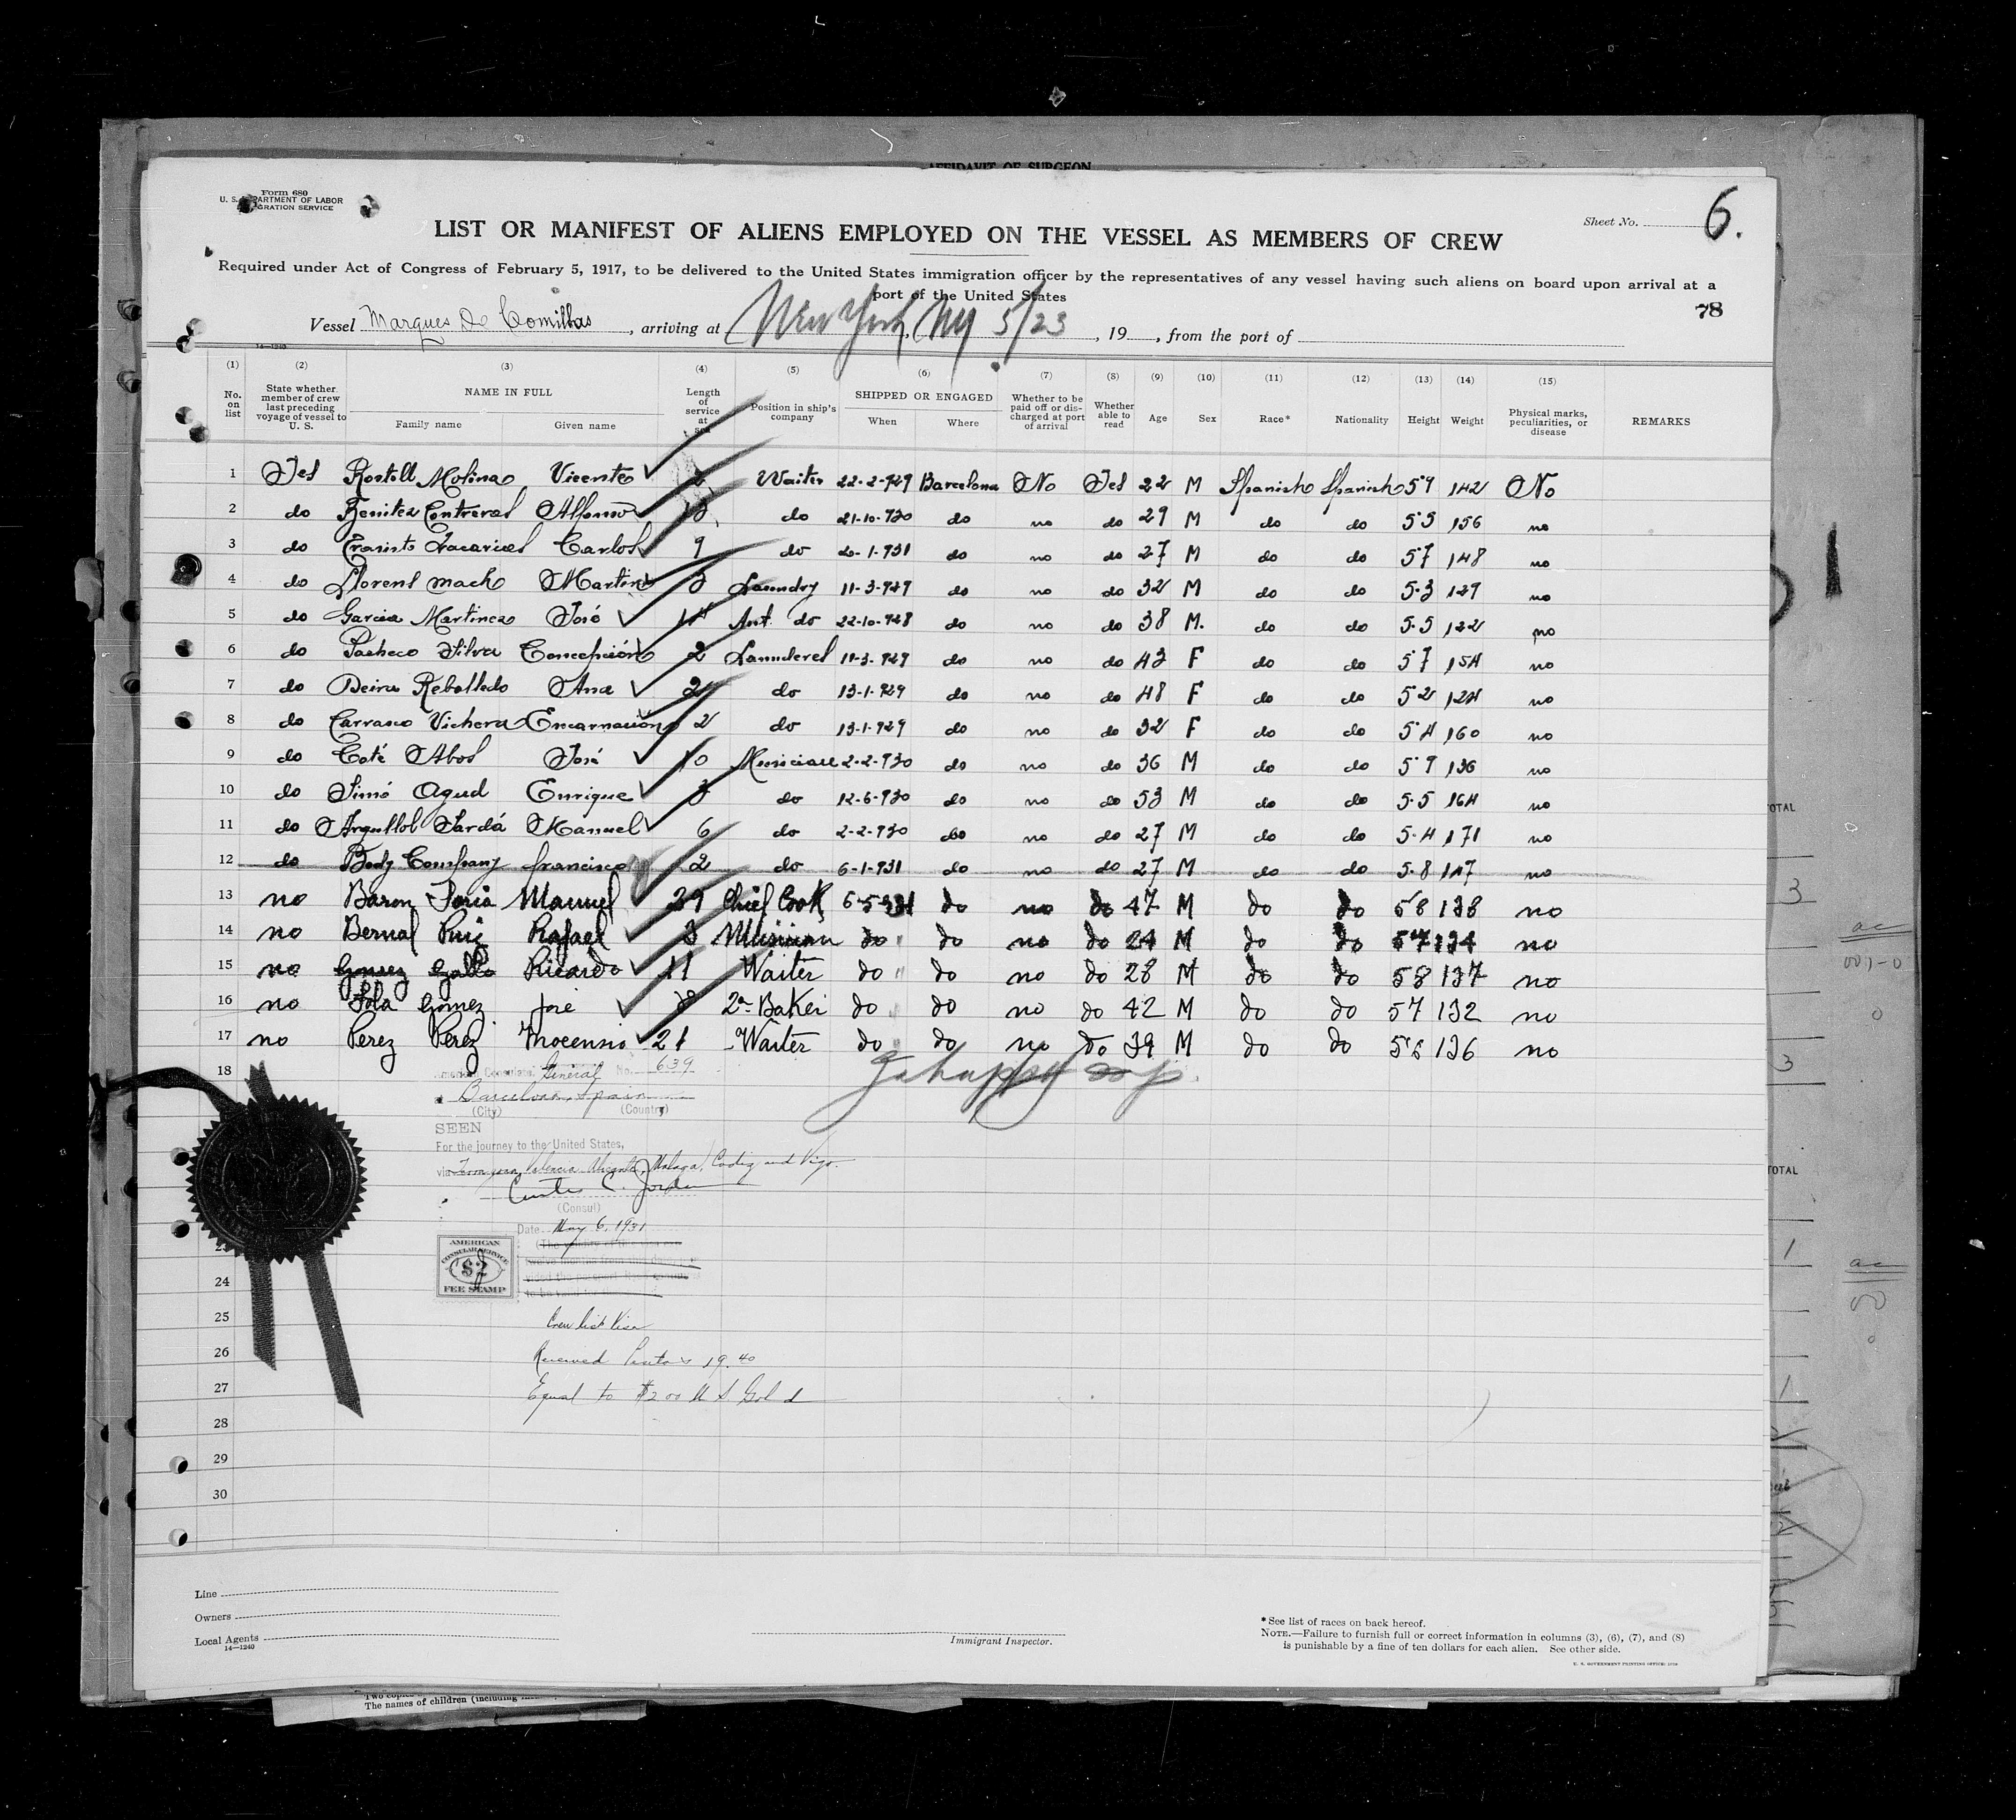 AFFIDAVIT OF SURGEON
Form 680
U. S. DEPARTMENT OF LABOR
IMMIGRATION SERVICE
Sheet No. 6.
LIST OR MANIFEST OF ALIENS EMPLOYED ON THE VESSEL AS MEMBERS OF CREW
Required under Act of Congress of February 5, 1917, to be delivered to the United States immigration officer by the representatives of any vessel having such aliens on board upon arrival at a
port of the United States
78
Vessel Marques De Comillas, arriving at New York, NY 5/23, 19, from the port of
14—1240
(1) (2) (3) (4) (5) (6) (7) (8) (9) (10) (11) (12) (13) (14) (15)
No. on list State whether member of crew last preceding voyage of vessel to U. S. NAME IN FULL Family name Given name Length of service at sea Position in ship's company SHIPPED OR ENGAGED When Where Whether to be paid off or discharged at port of arrival Whether able to read Age Sex Race* Nationality Height Weight Physical marks, peculiarities, or disease REMARKS
1 Yes Rostell Molina Vicente Waiter 22-2-929 Barcelona No Yes 22 M Spanish Spanish 59 142 No
2 do Benitez Contreras Alfonso do 21-10-930 do no do 29 M do do 5.5 156 no
3 do Carlos 9 do 2-1-931 do no do 27 M do do 57 148 no
4 do Llorens Mach Martin 3 Laundry 11-3-929 do no do 32 M do do 5.3 129 no
5 do Garcia Martinez José Ast. do 22-10-928 do no do 38 M. do do 5.5 122 no
6 do Pacheco Silva Concepción 2 Launderes 11-3-929 do no do 43 F do do 57 154 no
7 do Neira Rebolledo Ana 2 do 13-1-929 do no do 48 F do do 52 124 no
8 do Carrasco Vichera Encarnación 2 do 13-1-929 do no do 32 F do do 54 160 no
9 do Coté Abos José 10 Musician 2-2-930 do no do 36 M do do 59 136 no
10 do Simó Agud Enrique 3 do 12-6-930 do no do 53 M do do 5.5 164 no
11 do Argullol Sardá Manuel 6 do 2-2-930 do no do 27 M do do 5.4 171 no
12 do Body Company francisco 2 do 6-1-931 do no do 27 M do do 5.8 147 no
13 no Baron Soria Manuel 29 Chief Cook 6-5-931 do no do 47 M do do 58 138 no
14 no Bernal Ruiz Rafael 8 Musician do do no do 24 M do do 57 134 no
15 no Gomez Gallo Ricardo 11 Waiter do do no do 28 M do do 58 137 no
16 no Sola Gomez José 2ª Baker do do no do 42 M do do 57 132 no
17 no Perez Perez Inocensio 21 Waiter do do no do 39 M do do 56 136 no
18
American Consulate General No. 639
Barcelona, Spain
(City) (Country)
SEEN
For the journey to the United States,
via Tarragona, Valencia, Alicante, Malaga, Cadiz and Vigo.
Curtis C. Jordan
(Consul)
Date May 6, 1931
AMERICAN
CONSULAR SERVICE
$2
FEE STAMP
23
24
25 Crew list Visa
26 Received Pesetas 19.40
27 Equal to $2.00 U.S. Gold
28
29
30
Line
Owners
Local Agents
14—1240
Immigrant Inspector.
*See list of races on back hereof.
NOTE.—Failure to furnish full or correct information in columns (3), (6), (7), and (8)
is punishable by a fine of ten dollars for each alien. See other side.
U. S. GOVERNMENT PRINTING OFFICE
Two copies
The names of children (including